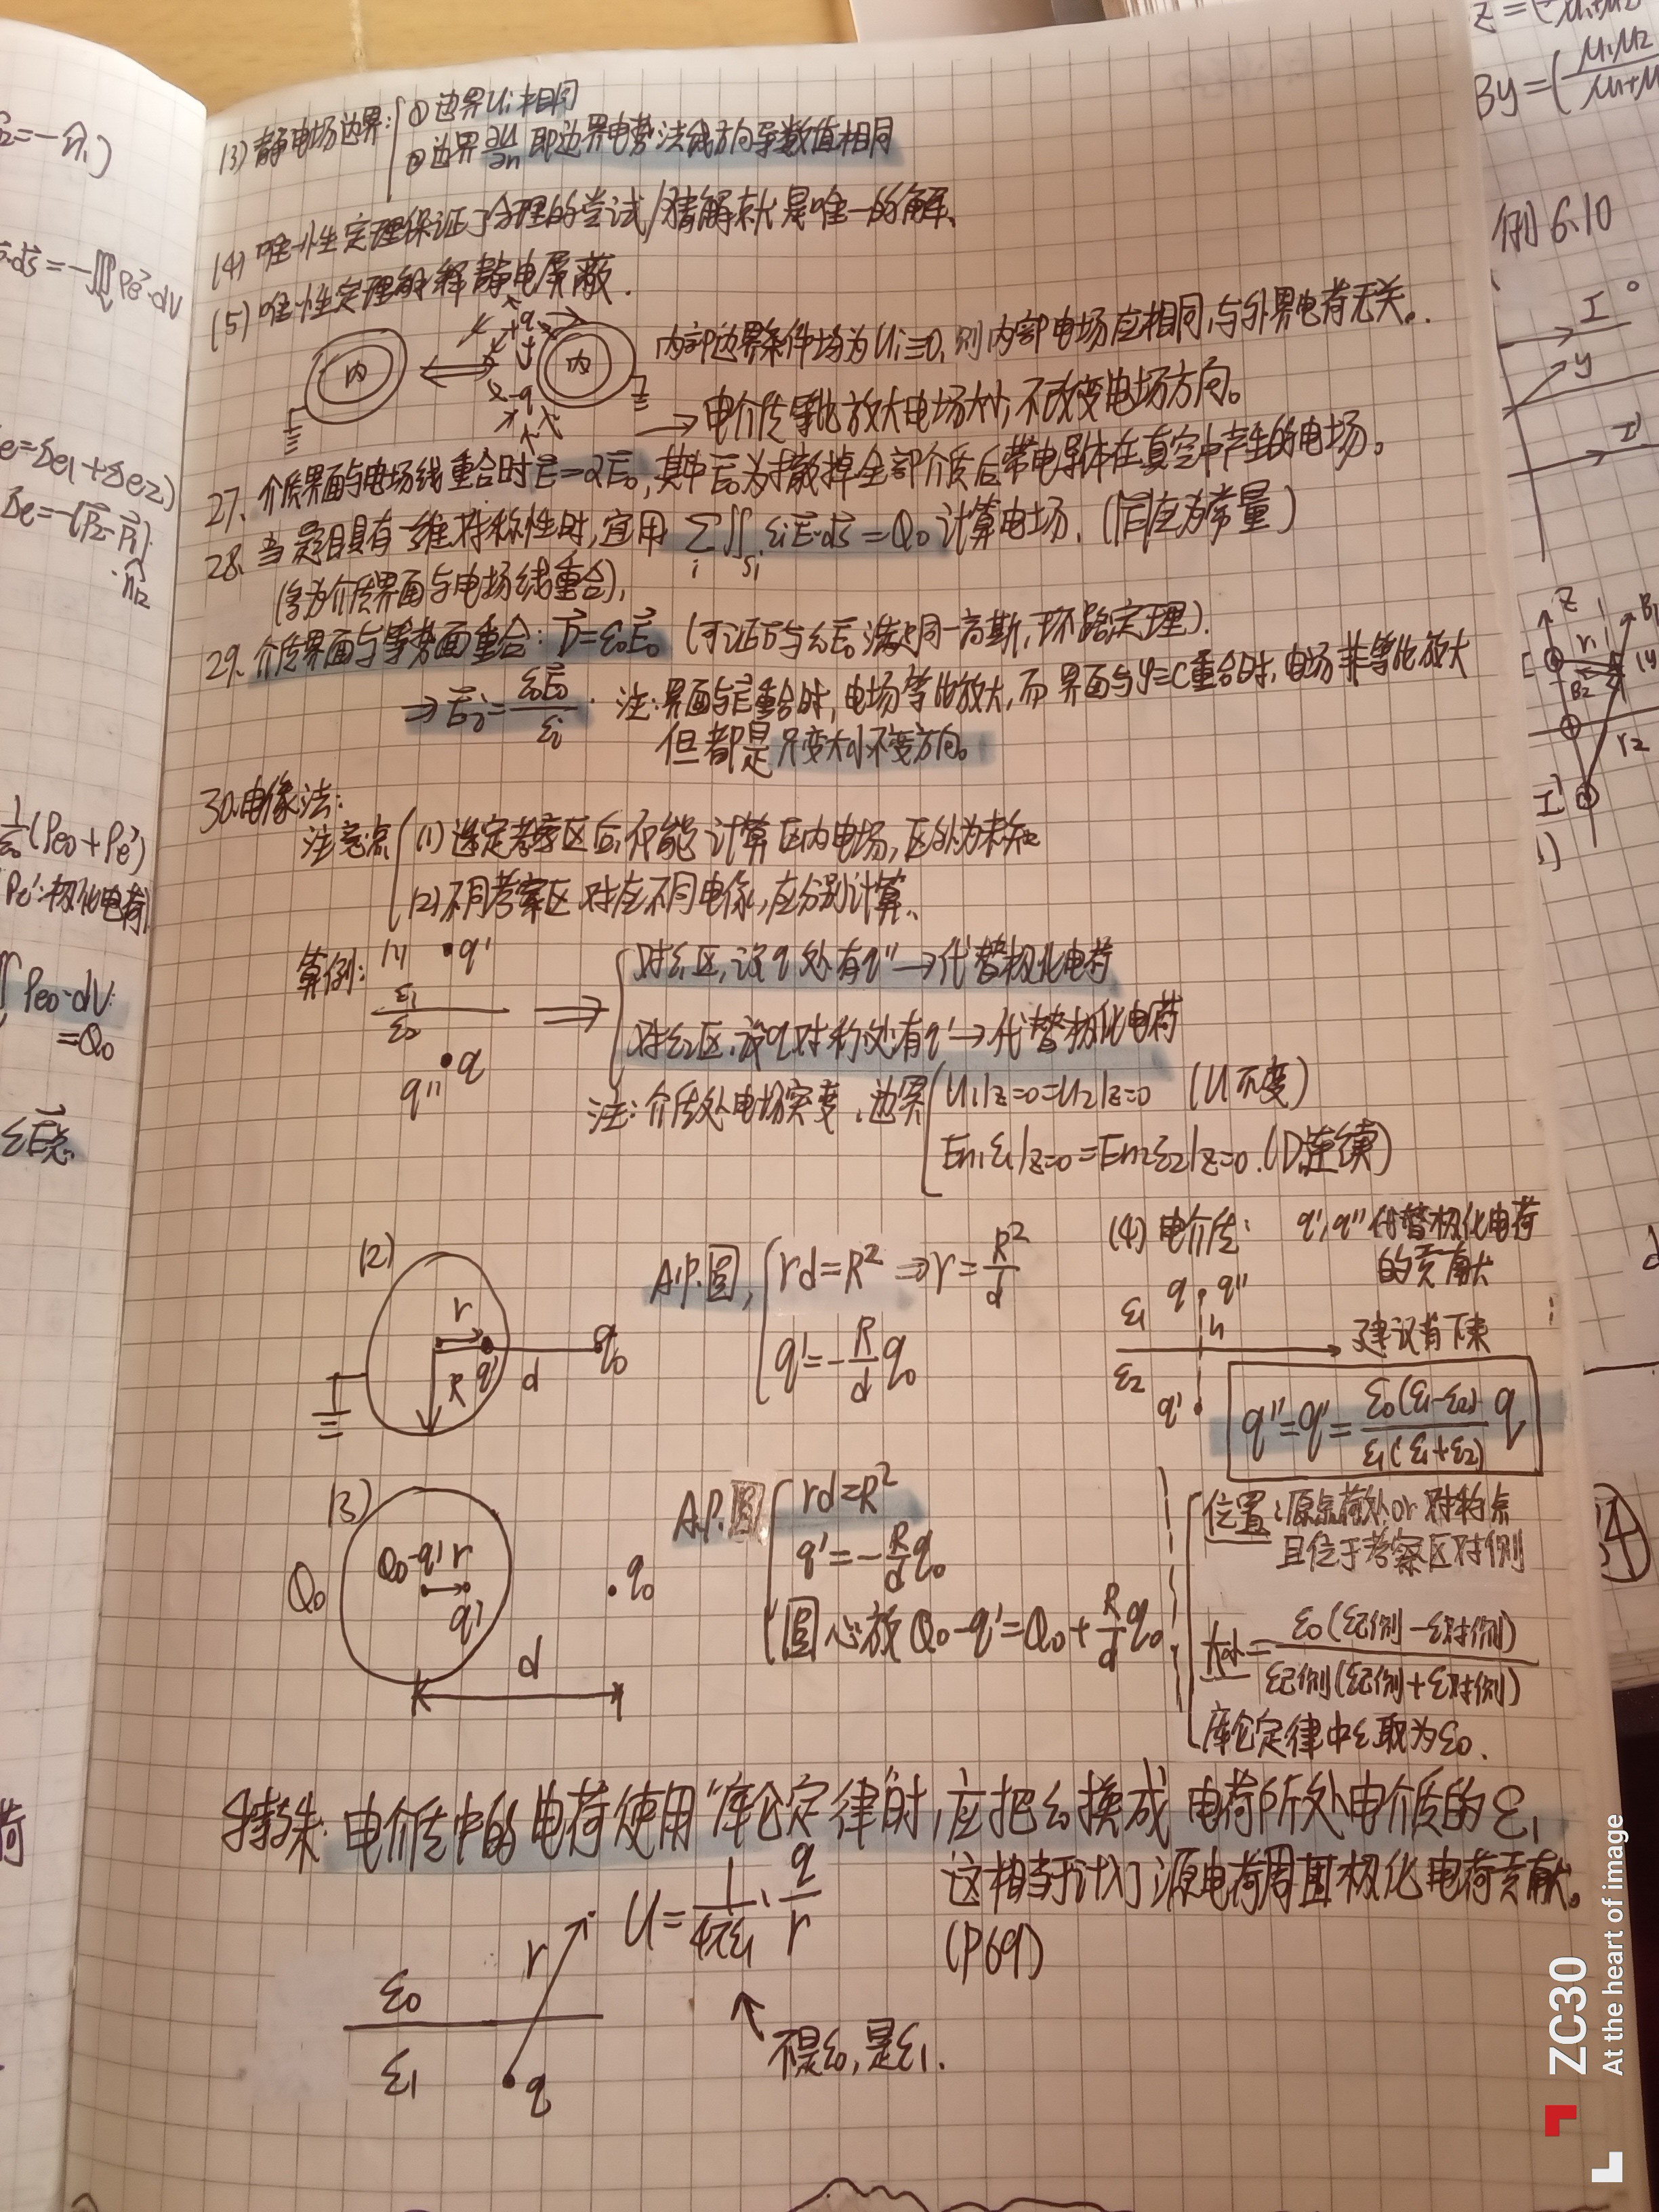 (3) 静电场边界: ① 边界Ui相同
② 边界∂U/∂n 即边界电势法线方向导数值相同
(4) 唯一性定理保证了合理的尝试/猜解就是唯一的解.
(5) 唯一性定理解释静电屏蔽.
内 内 q -q
内部边界条件均为Ui≡0, 则内部电场应相同,与外界电荷无关.
→ 电介质等比放大电场大小,不改变电场方向。
27. 介质界面与电场线重合时 E=αE0, 其中E0为撤掉全部介质后带电导体在真空中产生的电场。
28. 当题目具有一维对称性时,宜用 Σi∬Si εiE·dS=Q0 计算电场. (E应为常量)
(多为介质界面与电场线重合).
29. 介质界面与等势面重合: D=ε0E0 (可证D与ε0E0满足同一高斯,环路定理).
⇒ Ei=ε0E0/εi. 注:界面与E重合时,电场等比放大,而界面与φ=C重合时,电场非等比放大
但都是只变大小不变方向。
30. 电像法:
注意点 (1) 选定考察区后,仅能计算区内电场,区外为未知
(2) 不同考察区对应不同电像,应分别计算.
算例: (1) q'
ε1
ε2
q
q''
⇒ 对ε1区,设q处有q''→代替极化电荷
对ε2区,设q对称处有q'→代替极化电荷
注:介质处电场突变,边界 U1|z=0=U2|z=0 (U不变)
En1ε1|z=0=En2ε2|z=0. (D连续)
(2) r R q' d q0
A.P.圆, rd=R² ⇒ r=R²/d
q'=-R/d q0
(4) 电介质: q',q''代替极化电荷
的贡献
q q''
ε1 h
ε2 → 建议背下来
q'
q''=q'=ε0(ε1-ε2)/ε1(ε1+ε2) q
(3) Q0 Q0-q' r q' q0 d
A.P.圆 rd=R²
q'=-R/d q0
圆心放Q0-q'=Q0+R/d q0
位置:原点荷处or对称点
且位于考察区对侧
大小=ε0(ε记侧-ε对侧)/ε记侧(ε记侧+ε对侧)
库仑定律中ε取为ε0.
特殊: 电介质中的电荷使用"库仑定律"时,应把ε0换成 电荷所处电介质的ε1
这相当于计了源电荷周围极化电荷贡献。
(P69)
U=1/4πε1·q/r
r
ε0
ε1 q
不是ε0,是ε1.
例6.10
I
y
z
r2
ZC30
At the heart of image